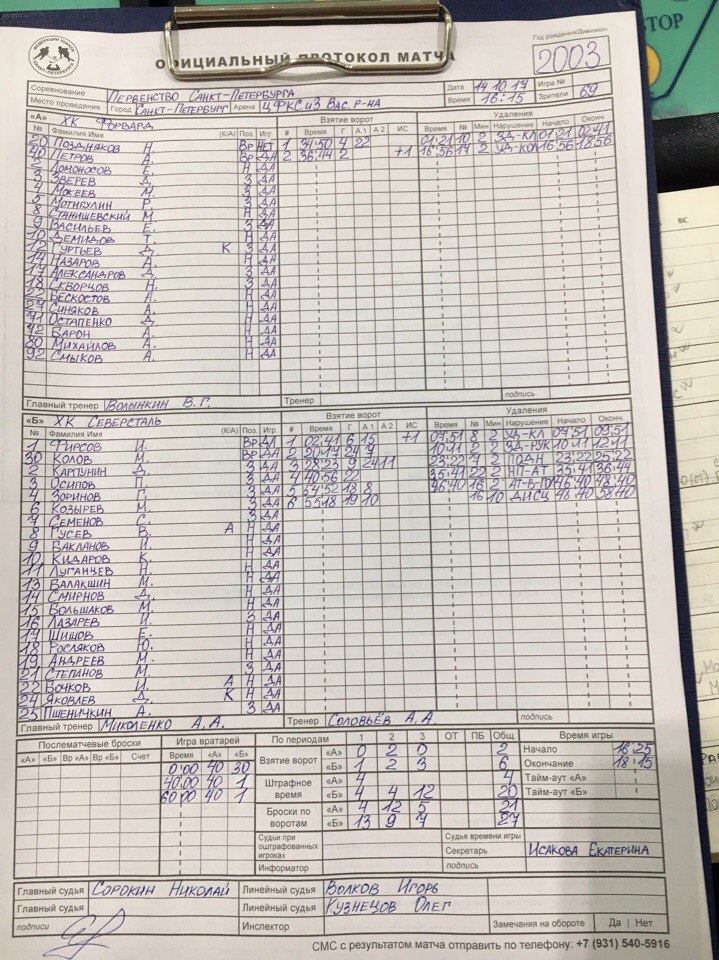 ОФИЦИАЛЬНЫЙ ПРОТОКОЛ МАТЧА
Год рождения/Дивизион
2003
Соревнование Первенство Санкт-Петербурга Дата 14.10.17 Игра №
Место проведения Город Санкт-Петербург Арена ЦФКСиЗ Вас. р-на Время 16:15 Зрители 69
«А» ХК Форвард Взятие ворот Удаления
№ Фамилия Имя (К/А) Поз. Игр # Время Г А1 А2 ИС Время № Мин Нарушение Начало Оконч.
20 Поздняков Н. Вр НЕТ 1 34:50 4 22 01:21 10 2 УД-КЛ 01:21 02:41
40 Петров А. Вр ДА 2 36:44 2 +1 16:56 17 2 УД-КЛ 16:56 18:56
2 Домоносов Е. Н ДА
3 Зверев Д. З ДА
4 Мокеев М. З ДА
5 Мотигулин Р. З ДА
8 Станишевский М. Н ДА
9 Васильев Е. З ДА
10 Демидов Т. Н ДА
12 Гуртьев Д. К З ДА
14 Назаров А. Н ДА
17 Александров Д. З ДА
18 Скворцов Н. З ДА
22 Бескостов А. Н ДА
27 Синяков А. Н ДА
71 Остапенко Д. Н ДА
72 Барон А. Н ДА
80 Михайлов А. Н ДА
92 Смыков А. Н ДА
Главный тренер Волынкин В.Г. Тренер подпись
«Б» ХК Северсталь Взятие ворот Удаления
№ Фамилия Имя (К/А) Поз. Игр # Время Г А1 А2 ИС Время № Мин Нарушение Начало Оконч.
1 Фирсов И. Вр ДА 1 02:41 6 15 +1 07:51 8 2 УД-КЛ 07:51 09:51
30 Колов М. Вр ДА 2 20:17 24 9 10:11 7 2 УД-РУК 10:11 12:11
2 Картунин Д. З ДА 3 28:23 9 24 11 23:22 9 2 ПОДН 23:22 25:22
3 Осипов П. З ДА 4 40:56 2 35:41 22 2 НП-АТ 35:41 36:44
4 Зоринов Г. З ДА 5 54:52 13 8 46:40 16 2 АТ-В-ГШ 46:40 48:40
6 Козырев М. З ДА 6 55:18 19 10 16 10 ДИСЦ 48:40 58:40
7 Семенов С. З ДА
8 Гусев В. А Н ДА
9 Бакланов И. Н ДА
10 Кидаров К. Н ДА
11 Луганцев Н. Н ДА
13 Валакшин М. Н ДА
14 Смирнов Д. Н ДА
15 Большаков М. Н ДА
16 Лазарев И. З ДА
17 Шишов Е. Н ДА
18 Росляков Ю. Н ДА
19 Андреев М. Н ДА
21 Степанов М. З ДА
22 Бочков И. А Н ДА
24 Яковлев Д. К Н ДА
25 Пшеничкин А. З ДА
Главный тренер Миколенко А.А. Тренер Соловьёв А.А. подпись
Послематчевые броски Игра вратарей По периодам 1 2 3 ОТ ПБ Общ. Время игры
«А» «Б» Вр «А» Вр «Б» Счет Время «А» «Б» Взятие ворот «А» 0 2 0 2 Начало 16 25
0:00 40 30 «Б» 1 2 3 6 Окончание 18 15
40:00 40 1 Штрафное время «А» 4 4 Тайм-аут «А»
60:00 40 1 «Б» 4 4 12 20 Тайм-аут «Б»
Броски по воротам «А» 4 12 5 21
«Б» 13 9 7 27
Судьи при оштрафованных игроках Судья времени игры
Секретарь Исакова Екатерина
Информатор подпись
Главный судья Сорокин Николай Линейный судья Волков Игорь
Главный судья Линейный судья Кузнецов Олег
подписи Инспектор Замечания на обороте Да | Нет
СМС с результатом матча отправить по телефону: +7 (931) 540-5916